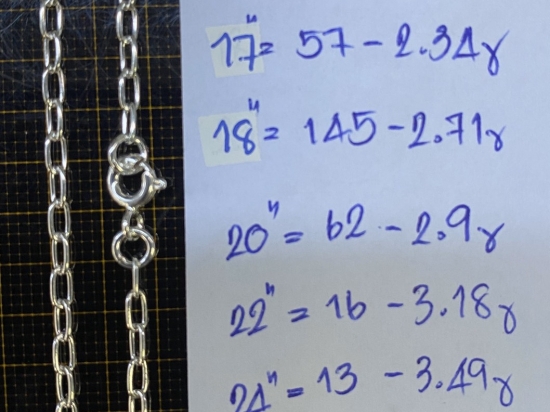 17"= 57 - 2.34g
18"= 145 - 2.71g
20"= 62 - 2.9g
22"= 16 - 3.18g
24"= 13 - 3.49g